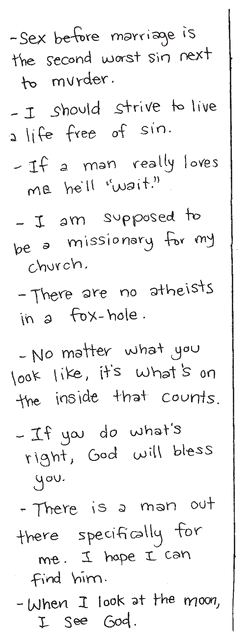 -Sex before marriage is
the second worst sin next
to murder.
- I should strive to live
a life free of sin.
- If a man really loves
me he'll "wait."
- I am supposed to
be a missionary for my
church.
- There are no atheists
in a fox-hole.
- No matter what you
look like, it's what's on
the inside that counts.
- If you do what's
right, God will bless
you.
- There is a man out
there specifically for
me. I hope I can
find him.
- When I look at the moon,
I see God.